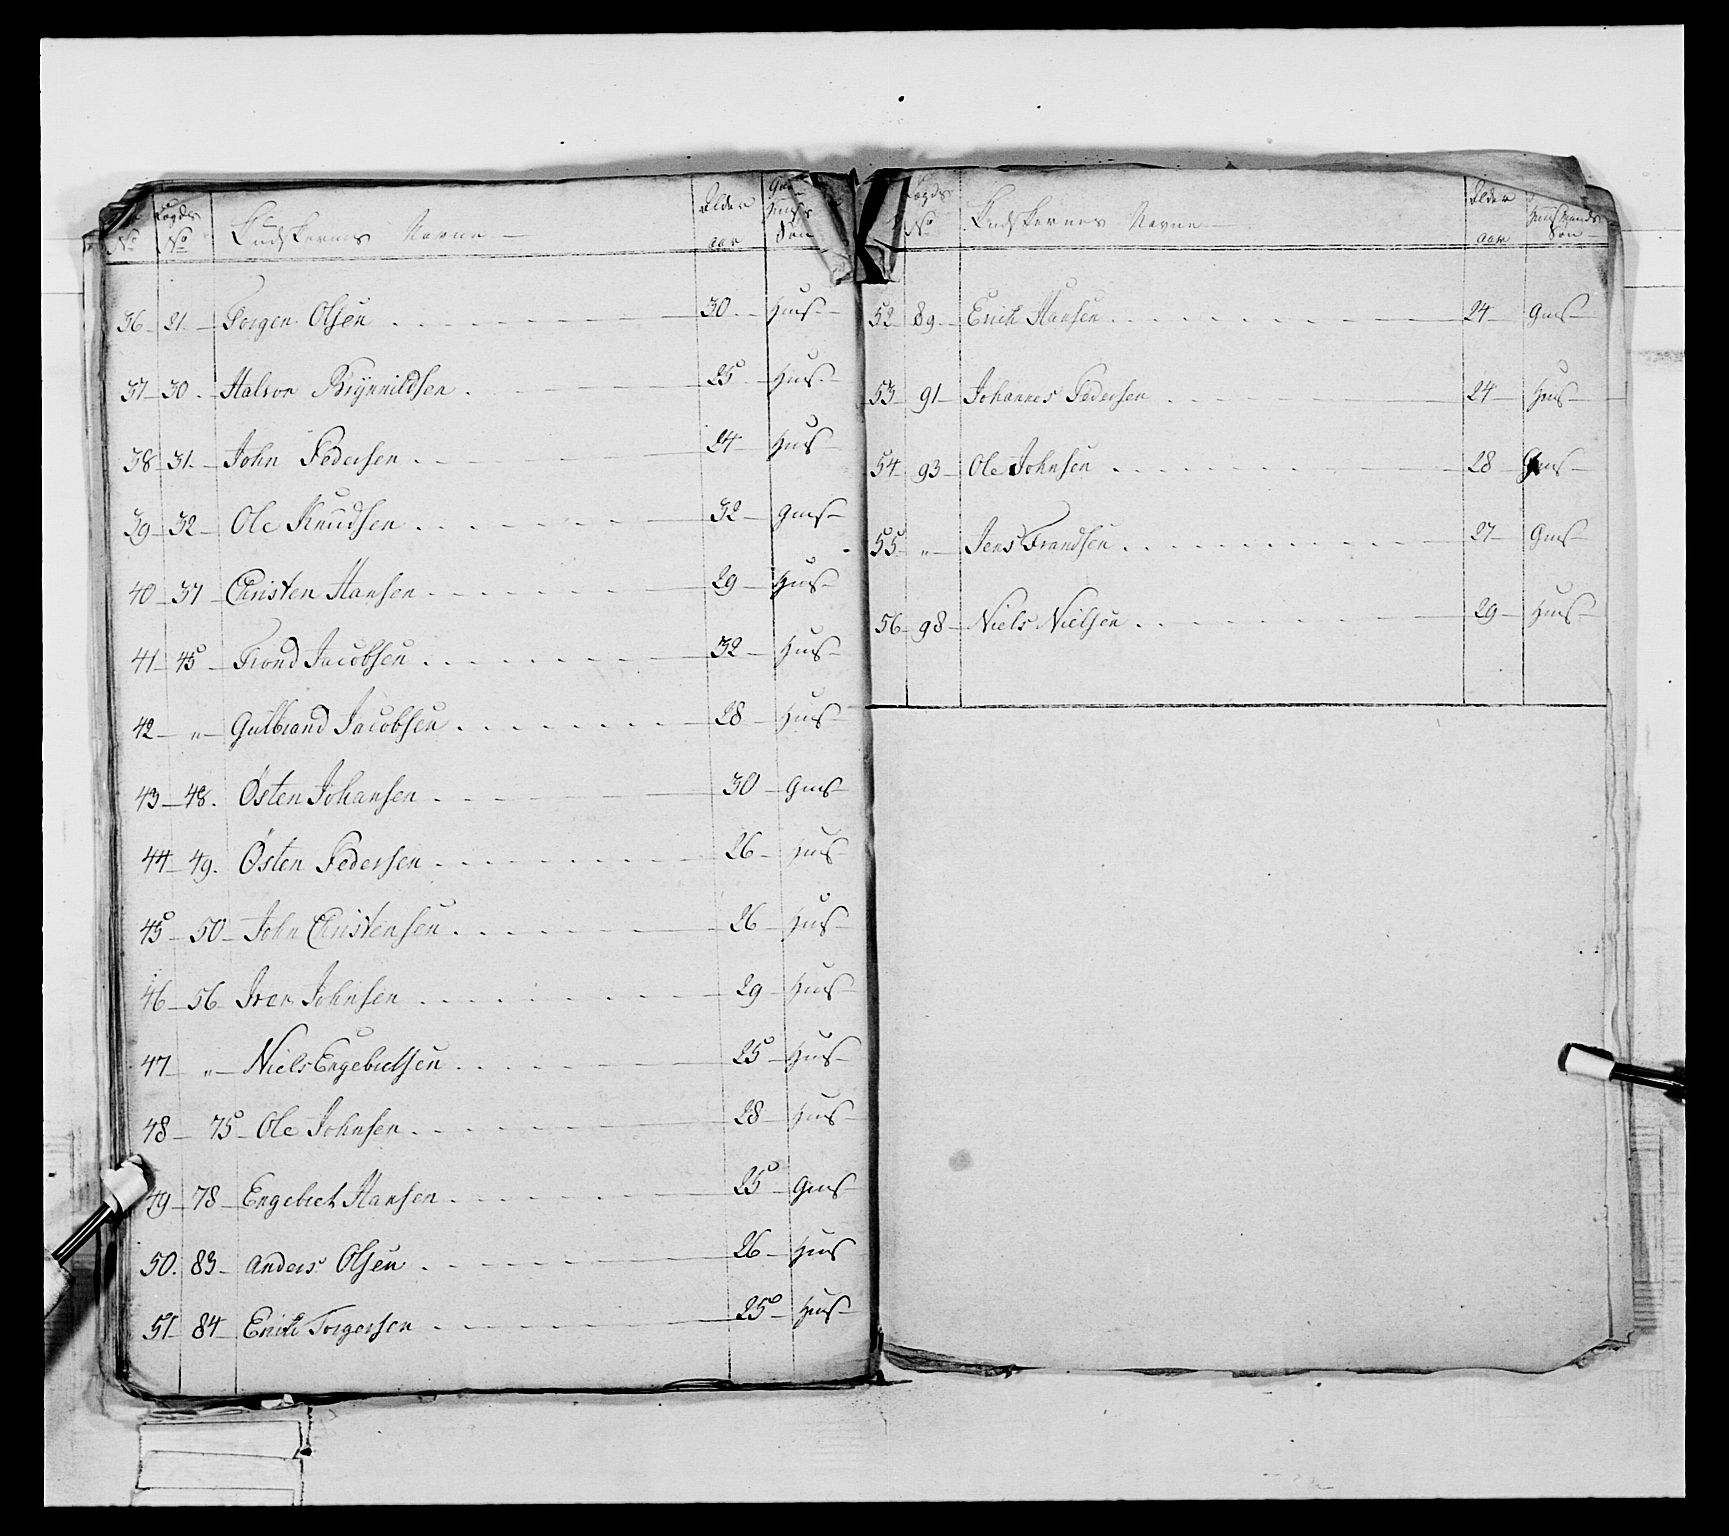 No Lægds No Kudskernes Navne Alder aar Huus Søn
36 21 Torger Olsen 30 Huus
37 30 Halvor Brÿnnildsen 25 Huus
38 31 John Pedersen 24 Huus
39 32 Ole Knudsen 32 Gaus
40 37 Christen Hansen 29 Huus
41 45 Trond Jacobsen 32 Huus
42 " Gulbrand Jacobsen 28 Huus
43 48. Østen Johansen 30 Gaus
44 49. Østen Pedersen 26 Huus
45 50 John Christensen 26 Huus
46 56 Iver Johnsen 29 Huus
47 " Niels Engebretsen 25 Huus
48 75 Ole Johnsen 28 Huus
49 78 Engebret Hansen 25 Gaus
50. 83 Anders Olsen 26 Huus
51 84 Erich Torgersen 25 Huus
Lægds No Kudskernes Navne Alder aar Huusmands Søn
52 89 Erich Hansen 24 Gaus
53 91 Johannes Pedersen 24 Huus
54 93 Ole Johnsen 28
55 " Jens Frandsen 27 Gaus
56 98 Niels Nielsen 29 Huus